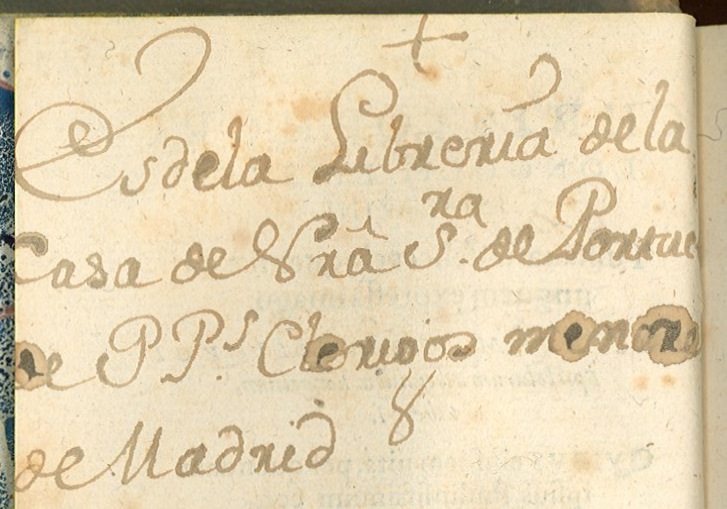 +
Es de la Libreria de la
Casa de Nrã S.ra de Portac
de P P.s Clerigos menore
de Madrid